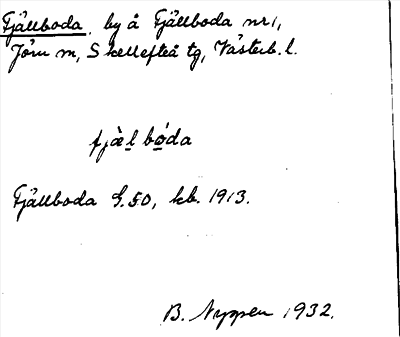 Fjällboda, by å Fjällboda nr 1,
Jörn m, Skellefteå tg, Västerb. l.
fjä̀l bóda
Fjällboda G.50, kb. 1913.
B. Nygren 1932.